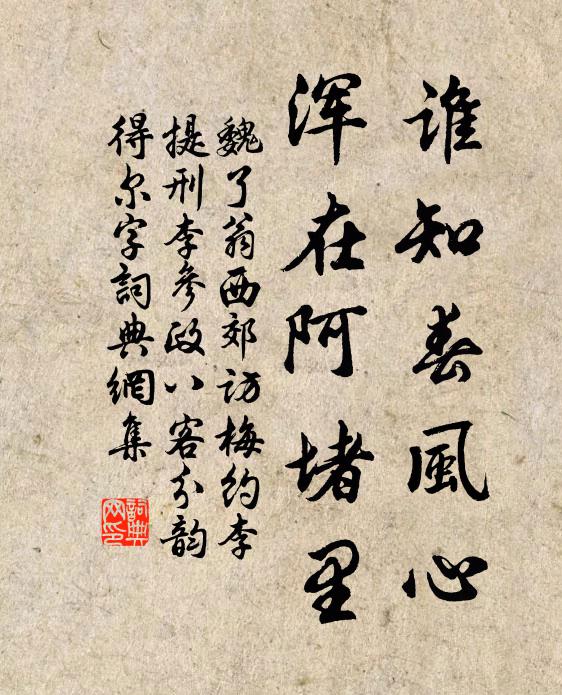 谁知春風心
浑在阿堵里
魏了翁西郊访梅约李
提刑李參政八客分韵
得尔字詞典網集
詞典網印